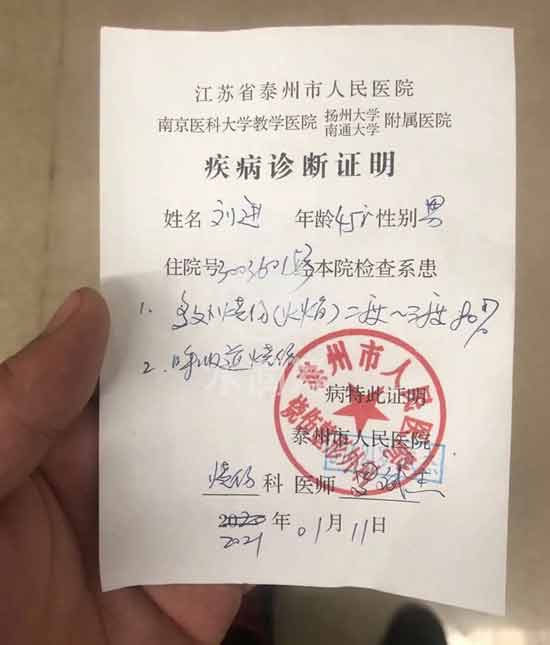 江苏省泰州市人民医院
南京医科大学教学医院 扬州大学 南通大学 附属医院
疾病诊断证明
姓名 刘进 年龄 45岁 性别 男
住院号 30036015 经本院检查系患
1. 多处烧伤(火焰)二度~三度 80%
2. 呼吸道烧伤
病特此证明
泰州市人民医院
烧伤科 医师
2020 年 01月11日
2021
泰州市人民医院
烧伤整形外科